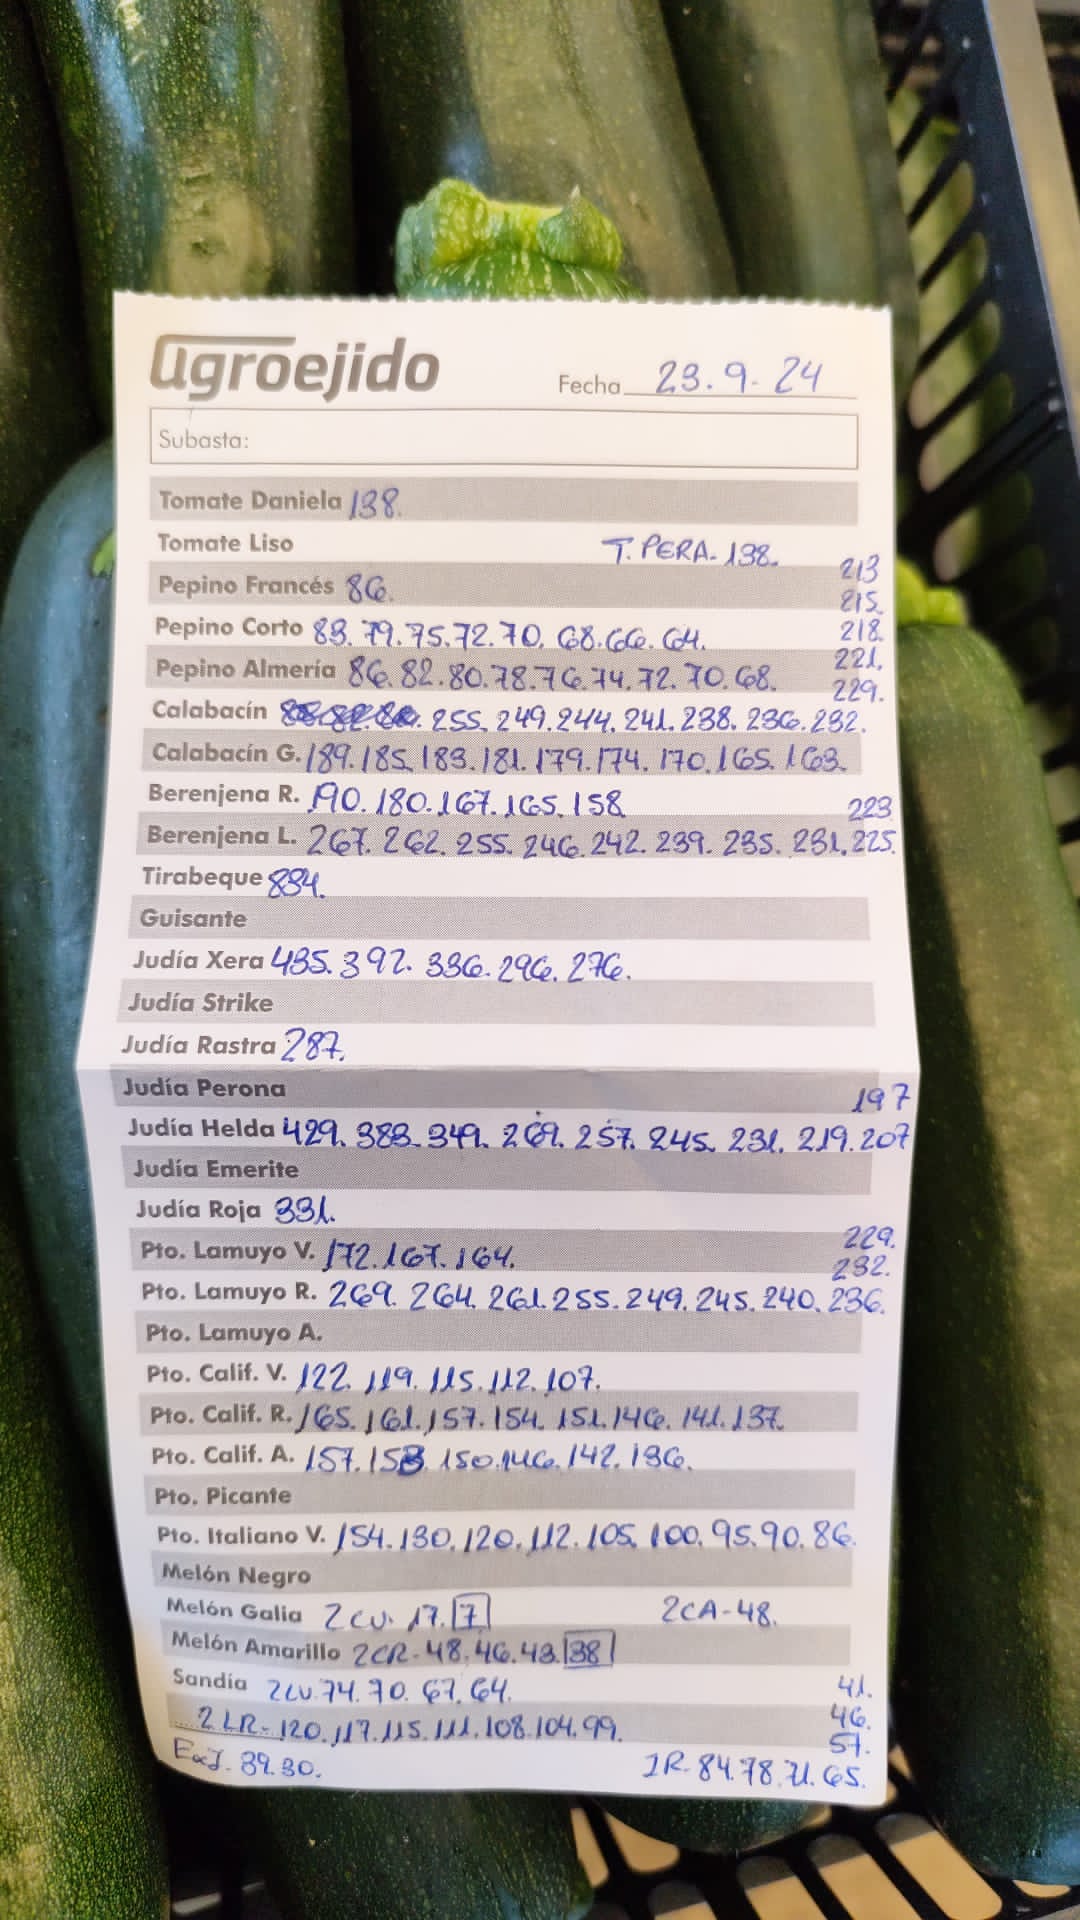 agroejido
Fecha 23.9.24
Subasta:
Tomate Daniela 138.
Tomate Liso T. PERA. 138.
213
Pepino Francés 86.
215.
Pepino Corto 83. 79. 75. 72. 70. 68. 66. 64.
218.
221.
Pepino Almería 86. 82. 80. 78. 76. 74. 72. 70. 68.
229.
Calabacín 255. 249. 244. 241. 238. 236. 232.
Calabacín G. 189. 185. 183. 181. 179. 174. 170. 165. 163.
Berenjena R. 190. 180. 167. 165. 158.
223
Berenjena L. 267. 262. 255. 246. 242. 239. 235. 231. 225.
Tirabeque 834.
Guisante
Judía Xera 435. 392. 336. 296. 276.
Judía Strike
Judía Rastra 287.
Judía Perona
197
Judía Helda 429. 383. 349. 269. 257. 245. 231. 219. 207
Judía Emerite
Judía Roja 331.
229.
Pto. Lamuyo V. 172. 167. 164.
232.
Pto. Lamuyo R. 269. 264. 261. 255. 249. 245. 240. 236.
Pto. Lamuyo A.
Pto. Calif. V. 122. 119. 115. 112. 107.
Pto. Calif. R. 165. 161. 157. 154. 151. 146. 141. 137.
Pto. Calif. A. 157. 153. 150. 146. 142. 136.
Pto. Picante
Pto. Italiano V. 154. 130. 120. 112. 105. 100. 95. 90. 86.
Melón Negro
Melón Galia 2CV. 17. 7 2CA-48.
Melón Amarillo 2CR-48. 46. 43. 38
Sandía 2LV. 74. 70. 67. 64.
41.
46.
2 LR-120. 117. 115. 111. 108. 104. 99.
57.
ExJ. 39. 30. 1R-84. 78. 71. 65.